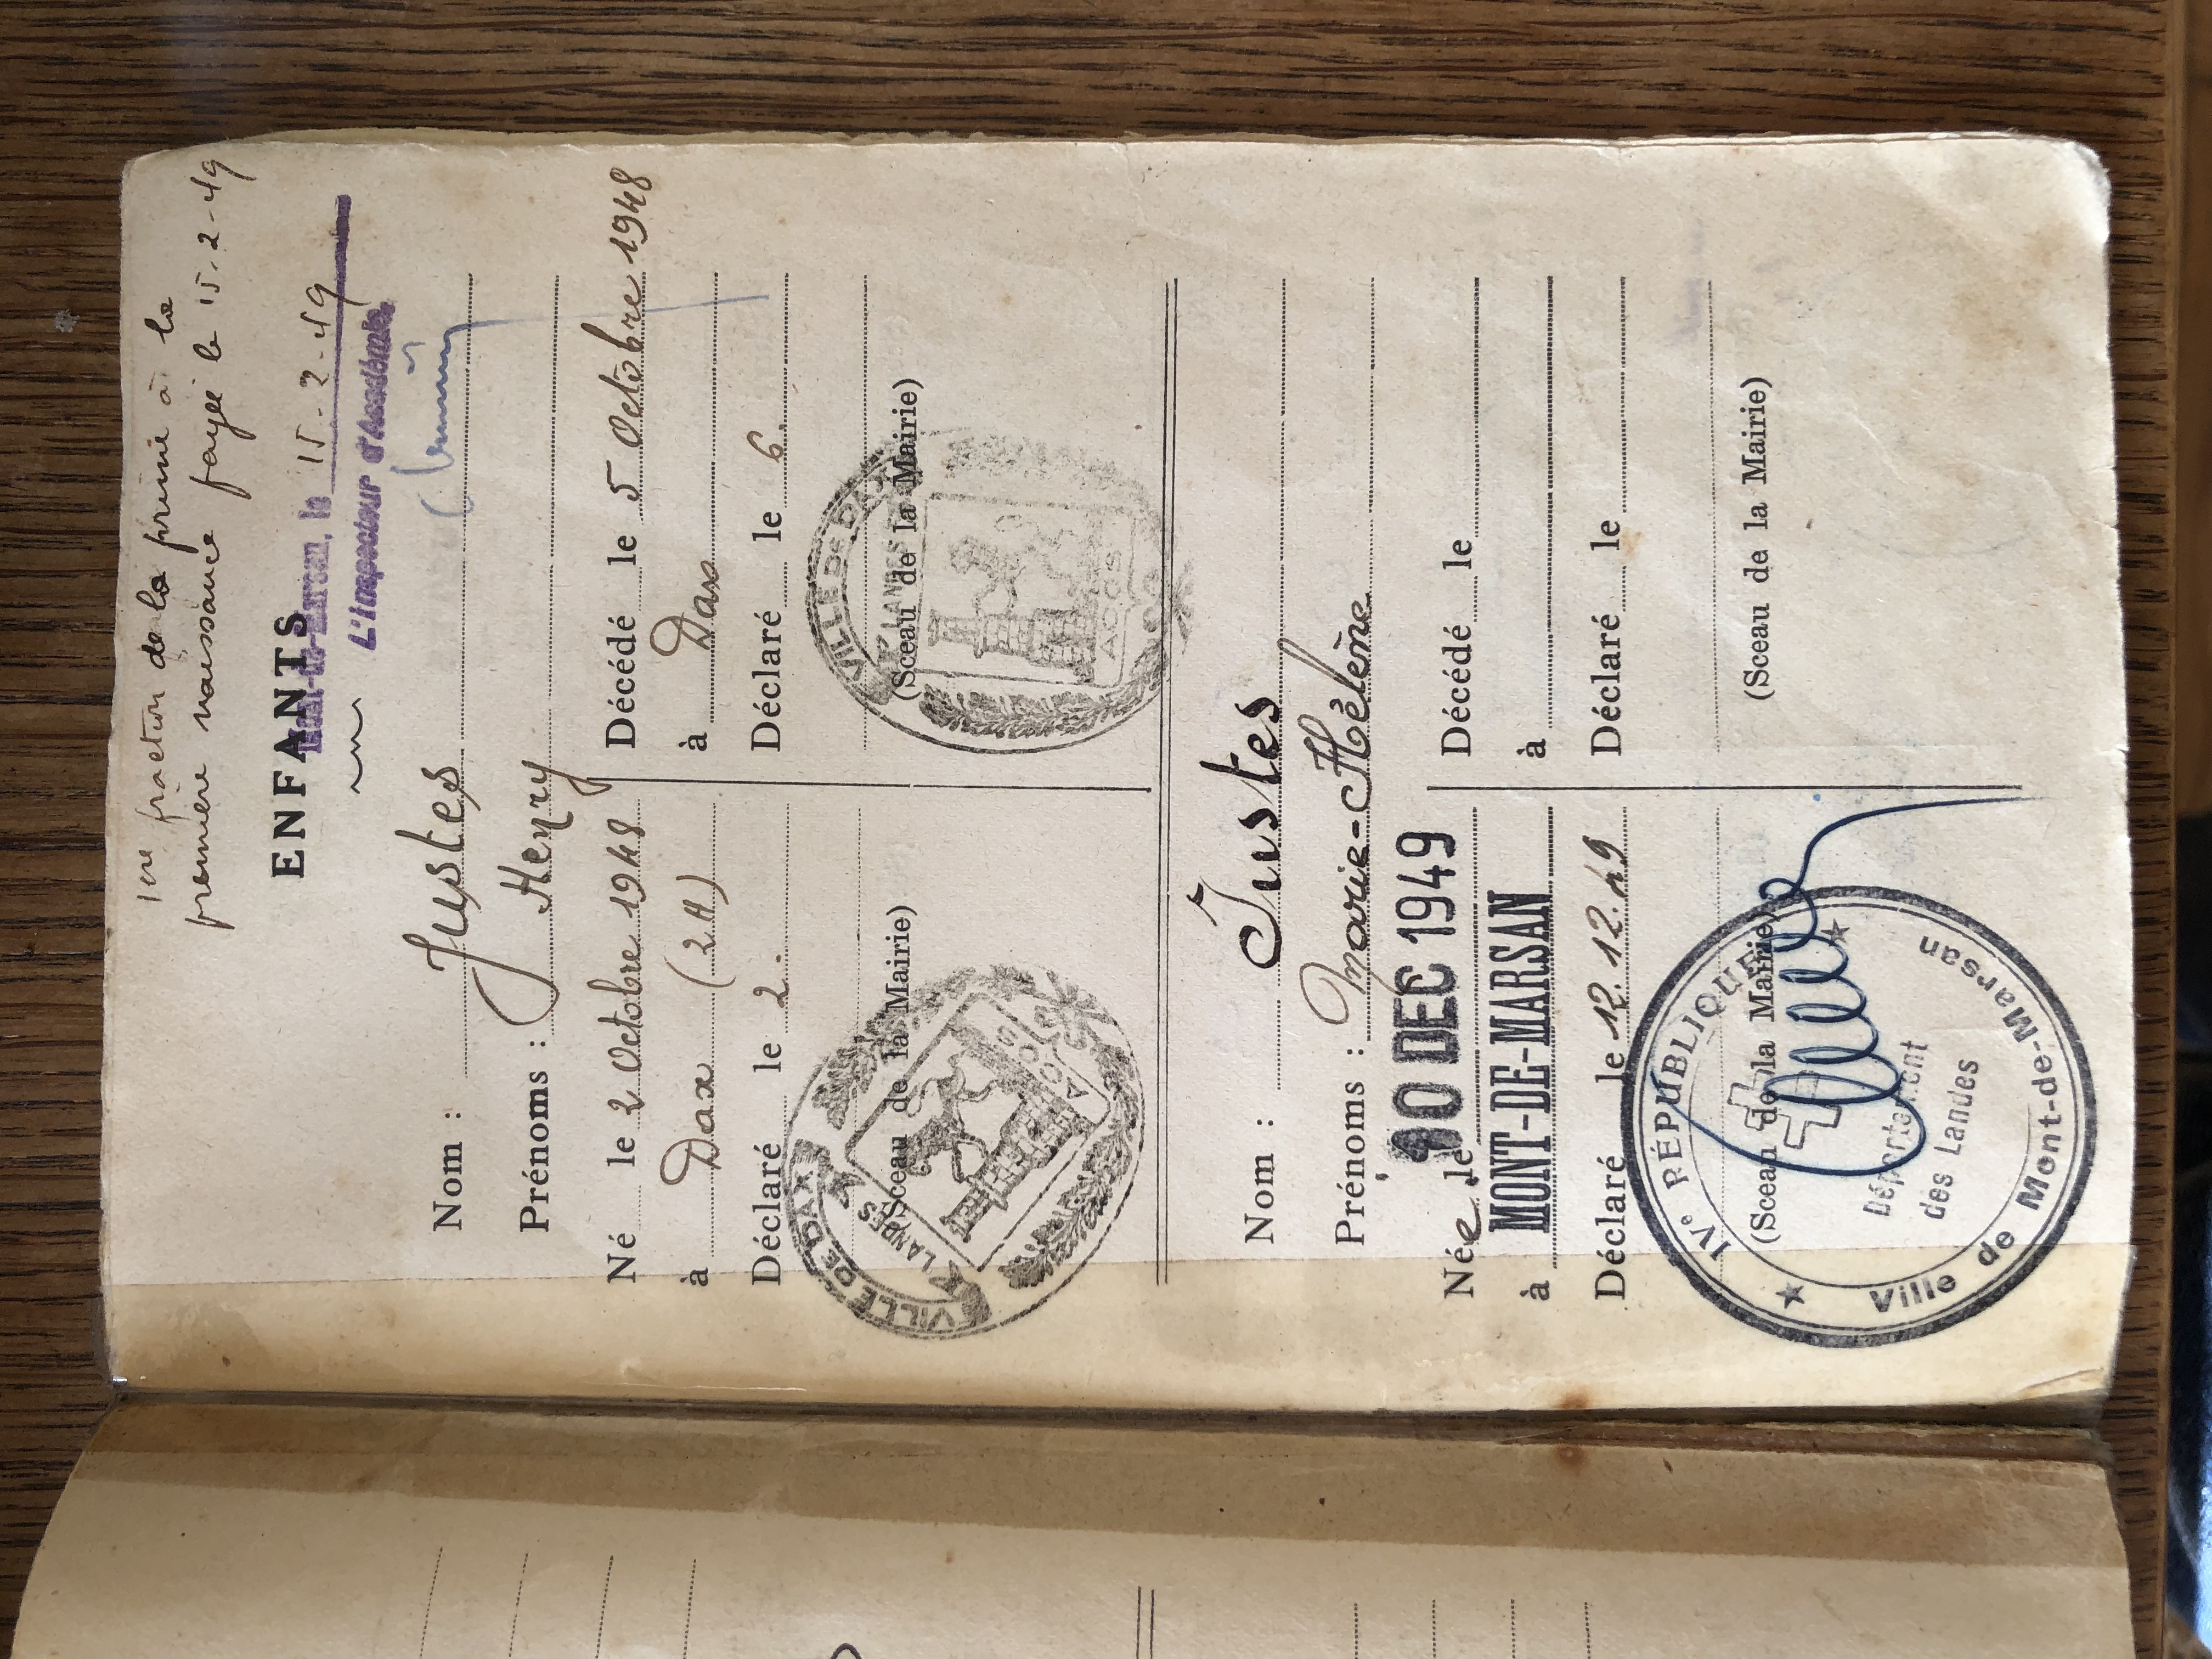 1ere fraction de la prime à la
première naissance payée le 15-2-49
ENFANTS
Mont-de-Marsan, le 15-2-49
L'Inspecteur d'Académie,
Nom : Justes
Prénoms : Henry
Né le 2 Octobre 1948
à Dax (2H)
Déclaré le 2.
(Sceau de la Mairie)
VILLE DE DAX
LANDES
Décédé le 5 Octobre 1948
à Dax
Déclaré le 6.
(Sceau de la Mairie)
VILLE DE DAX
LANDES
Nom : Justes
Prénoms : Marie-Hélène
Née le 10 DEC 1949
à MONT-DE-MARSAN
Déclaré le 12.12.49
(Sceau de la Mairie)
IVe RÉPUBLIQUE
Département
des Landes
Ville de Mont-de-Marsan
Décédé le
à
Déclaré le
(Sceau de la Mairie)